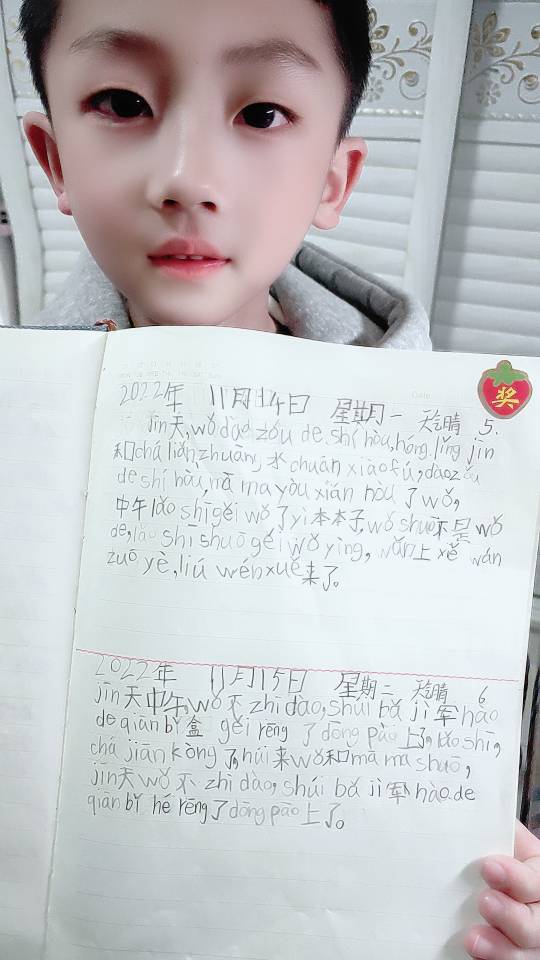 奖
2022年 11月14日 星期一 天气晴 5.
jīn天,wǒ dào zǎu de shí hòu,hóng lǐng jīn
和chá lián zhuang 水 chuān xiào fú, dào zǎu
de shí hòu, mā ma yòu xiǎn hòu 了wǒ,
中午lǎo shī gěi wǒ 了yì本本子,wǒ shuō不是wǒ
de,lǎo shī shuō gěi wǒ yìng, wǎn上xiě wán
zuō yè,liú wén xuě来了。
2022年 11月15日 星期二 天气晴 6
jīn天中午,wǒ不zhi dào,shúi bǎ jì军hào
de qiān bǐ盒 gěi rēng 了dōng pào上了,lǎo shī,
chá jiān kòng了,húi来wǒ和mā ma shuō,
jīn天wǒ不 zhì dào, shúi bǎ jì军hào de
qiān bǐ hé rēng了dōng pāo上了。